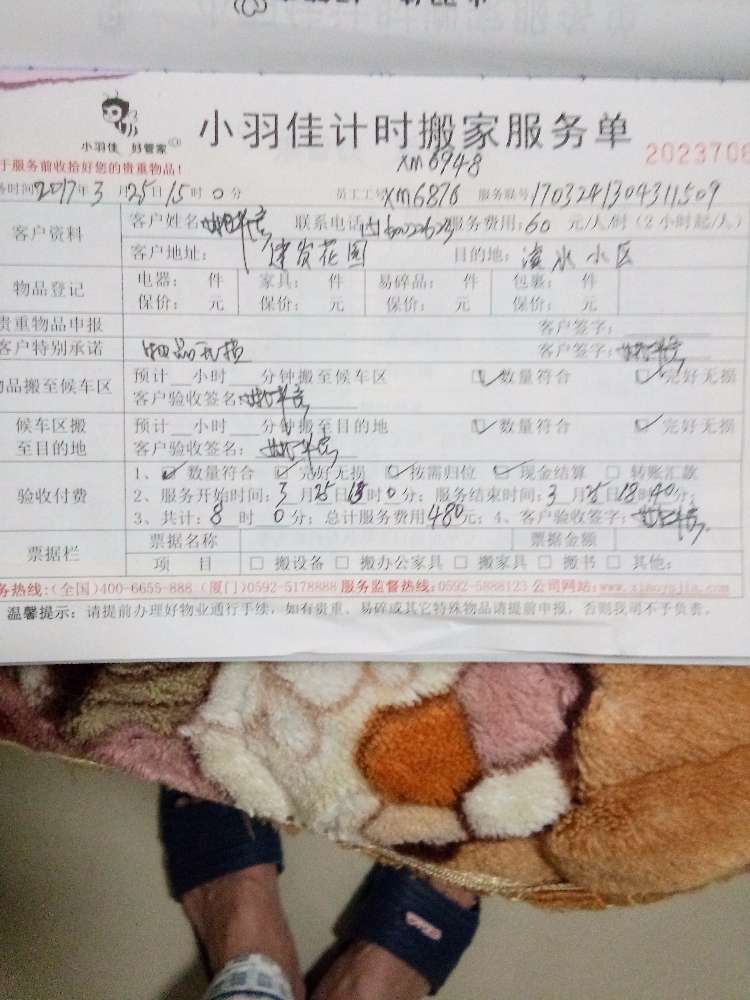 小羽佳 好管家
小羽佳计时搬家服务单
XM6948
2023706
于服务前收拾好您的贵重物品!
务时间2017年3月25日15时0分 员工工号XM6876 服务联号1703241304311509
客户资料 客户姓名 联系电话 服务费用:60元/人/时(2小时起/人)
客户地址: 建发花园 目的地: 滨水小区
物品登记 电器: 件 家具: 件 易碎品: 件 包裹: 件
保价: 元 保价: 元 保价: 元 保价: 元
贵重物品申报 客户签字:
客户特别承诺 物品无损 客户签字:
物品搬至候车区 预计__小时__分钟搬至候车区 ☑数量符合 ☑完好无损
客户验收签名:
候车区搬至目的地 预计__小时__分钟搬至目的地 ☑数量符合 ☑完好无损
客户验收签名:
验收付费 1、☑数量符合 ☑完好无损 ☑按需归位 ☑现金结算 □转账汇款
2、服务开始时间:3月25日15时0分; 服务结束时间:3月25日18时40分;
3、共计:8时0分; 总计服务费用480元; 4、客户验收签字:
票据栏 票据名称 票据金额
项 目 □搬设备 □搬办公家具 □搬家具 □搬书 □其他:
务热线:(全国)400-6655-888 (厦门)0592-5178888 服务监督热线:0592-5888123 公司网站:www.xiaoyujia.com
温馨提示: 请提前办理好物业通行手续, 如有贵重、易碎或其它特殊物品请提前申报, 否则我司不予负责。